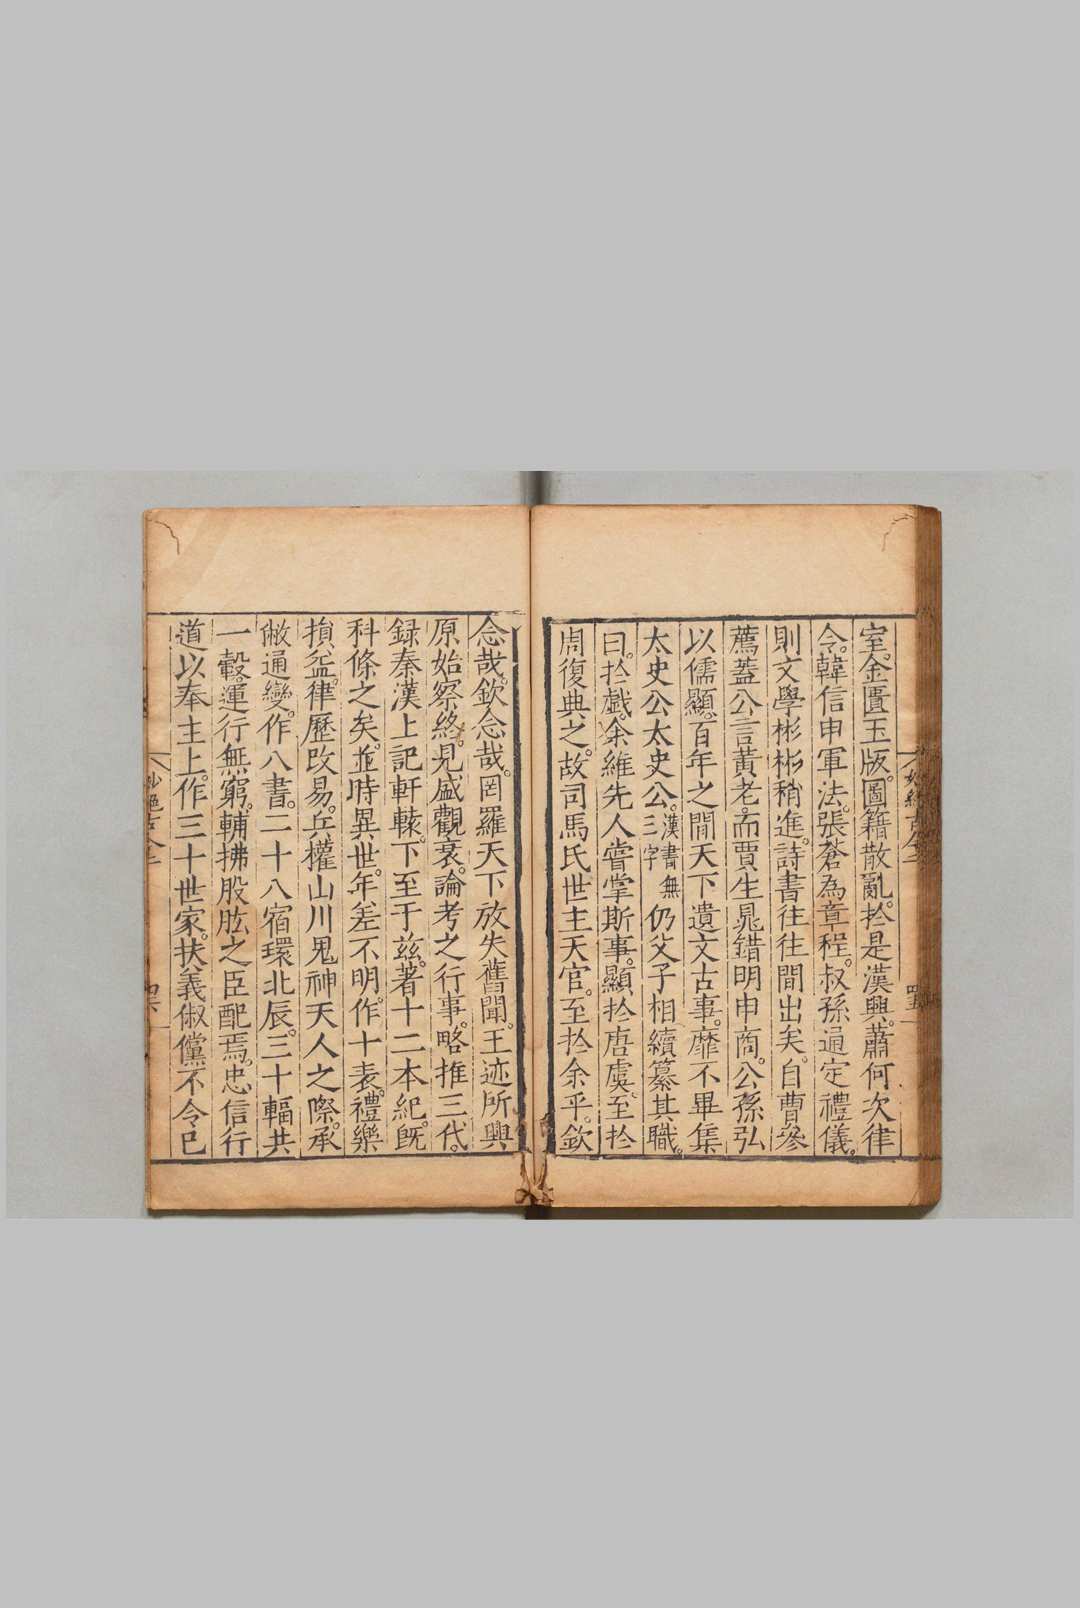 室。金匱玉版。圖籍散亂。扵是漢興。蕭何次律
令。韓信申軍法。張蒼為章程。叔孫通定禮儀。
則文學彬彬稍進。詩書往往間出矣。自曹參
薦蓋公言黃老。而賈生晁錯明申商。公孫弘
以儒顯。百年之間天下遺文古事。靡不畢集
太史公太史公。漢書無三字仍父子相續纂其職。
曰。扵戲。余維先人嘗掌斯事。顯扵唐虞。至扵
周復典之。故司馬氏世主天官。至扵余乎。欽
念哉。欽念哉。罔羅天下放失舊聞。王迹所興
原始察終。見盛觀衰。論考之行事。略推三代。
録秦漢上記軒轅。下至于兹。著十二本紀。旣
科條之矣。並時異世。年差不明。作十表。禮樂
損益。律歷改易。兵權山川鬼神天人之際。承
敝通變。作八書。二十八宿環北辰。三十輻共
一轂。運行無窮。輔拂股肱之臣配焉。忠信行
道以奉主上。作三十世家。扶義俶儻不令已